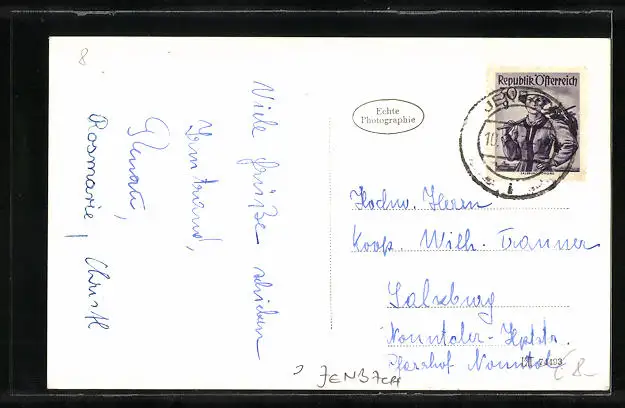 8
Viele Grüße schicken
Irmtraud,
Renate,
Rosmarie, Christl
Echte
Photographie
Republik Österreich
Hochw. Herrn
Koop. Wilh. Tranner
Salzburg
Nonntaler-Hptstr.
Pfarrhof Nonntal
JENBACH
8-